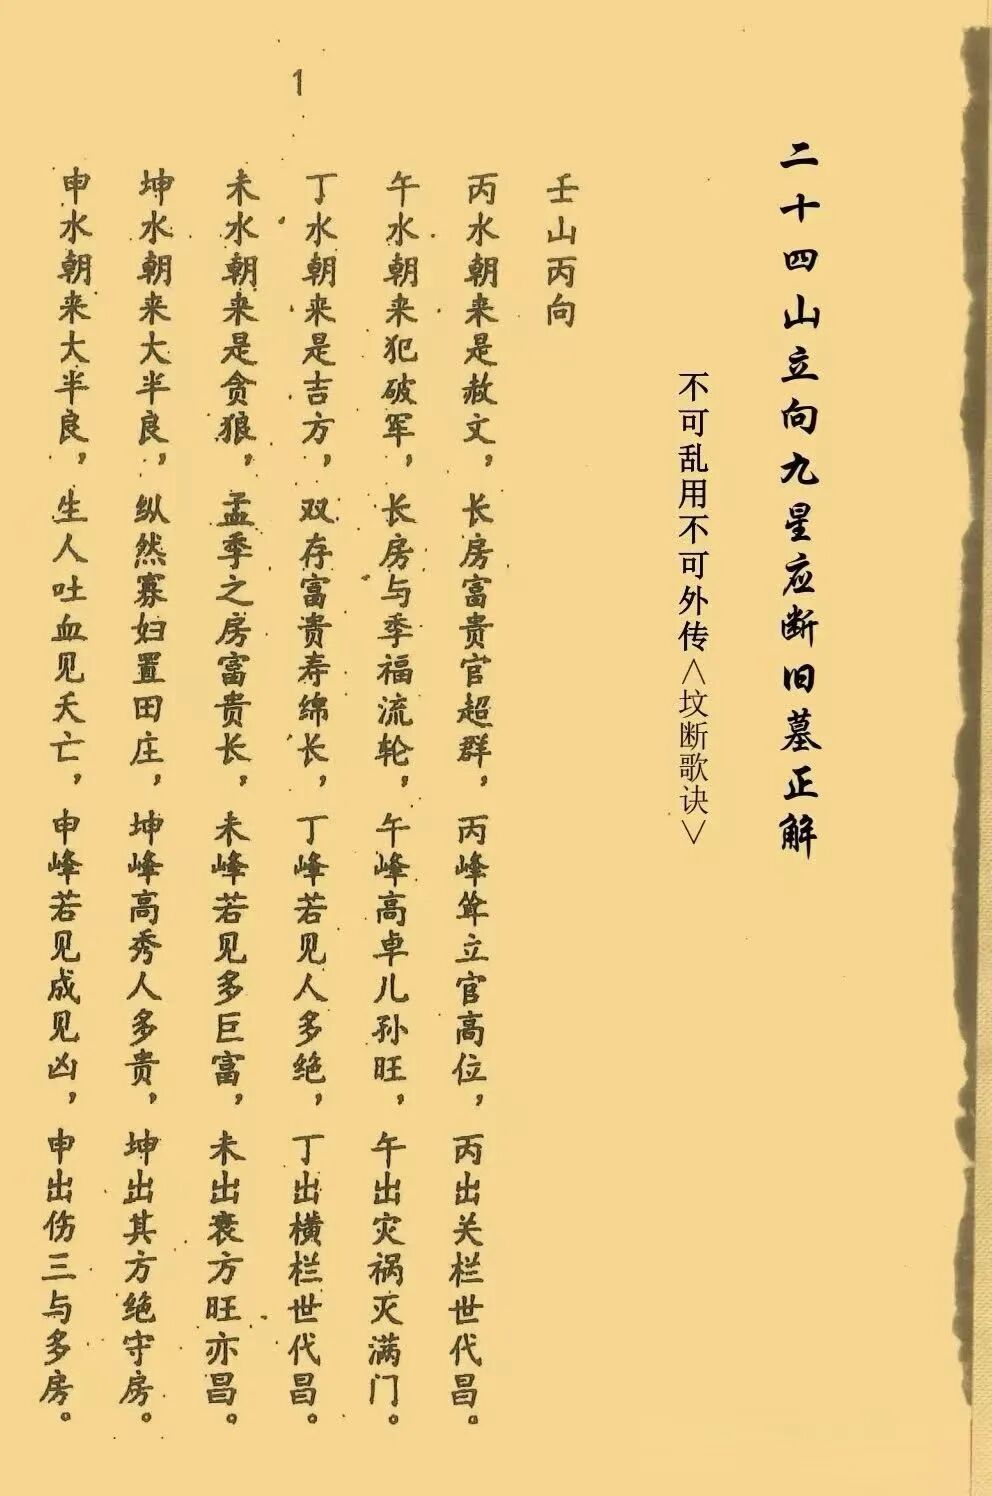 二十四山立向九星应断旧墓正解
不可乱用不可外传<坟断歌诀>
1
壬山丙向
丙水朝来是赦文，长房富贵官超群，丙峰耸立官高位，丙出关栏世代昌。
午水朝来犯破军，长房与季福流轮，午峰高卓儿孙旺，午出灾祸灭满门。
丁水朝来是吉方，双存富贵寿绵长，丁峰若见人多绝，丁出横栏世代昌。
未水朝来是贪狼，孟季之房富贵长，未峰若见多巨富，未出衰方旺亦昌。
坤水朝来大半良，纵然寡妇置田庄，坤峰高秀人多贵，坤出其方绝守房。
申水朝来大半良，生人吐血见夭亡，申峰若见成见凶，申出伤三与多房。